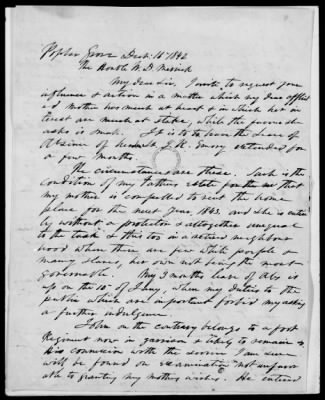 Poplar Grove Dec. 16th 1842
The Honble W. D. Merrick
My dear Sir, I write to request your
influence & action in a matter which my dear afflict
ed mother has much at heart & in which her in
terest are much at stake, while the favor she
asks is small. It is to have the leave of
Absence of my brother J. K. Emory extended for
a few months.
The circumstances are these. Such is the
condition of my Fathers estate for the use that
my mother is compelled to rent the home
place for the next year, 1843, and she is entire
ly without a protector & altogether unequal
to the task & this too in a retired neighbour
hood where there are few white people &
many slaves, her own not being the most
governable. My 3 months leave of Abs is
up on the 10th of Jany, when my duties to the
public which are important forbid my asking
a further indulgence.
John on the contrary belongs to a foot
Regiment now in garrison & likely to remain &
his connexion with the service I am sure
will be found on examination not unfavor
able to granting my mothers wishes. He entered